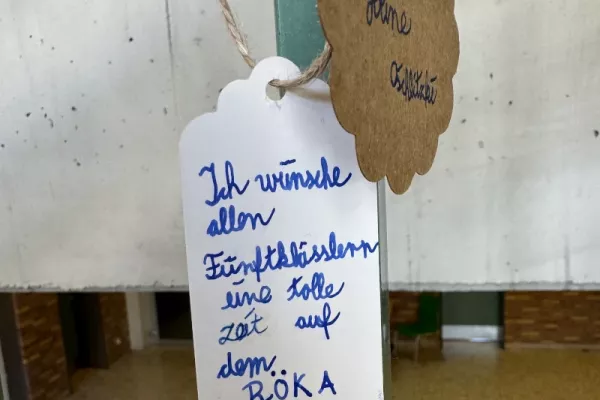 Ich wünsche
allen
Fünftklässlern
eine tolle
zeit auf
dem
RÖKA